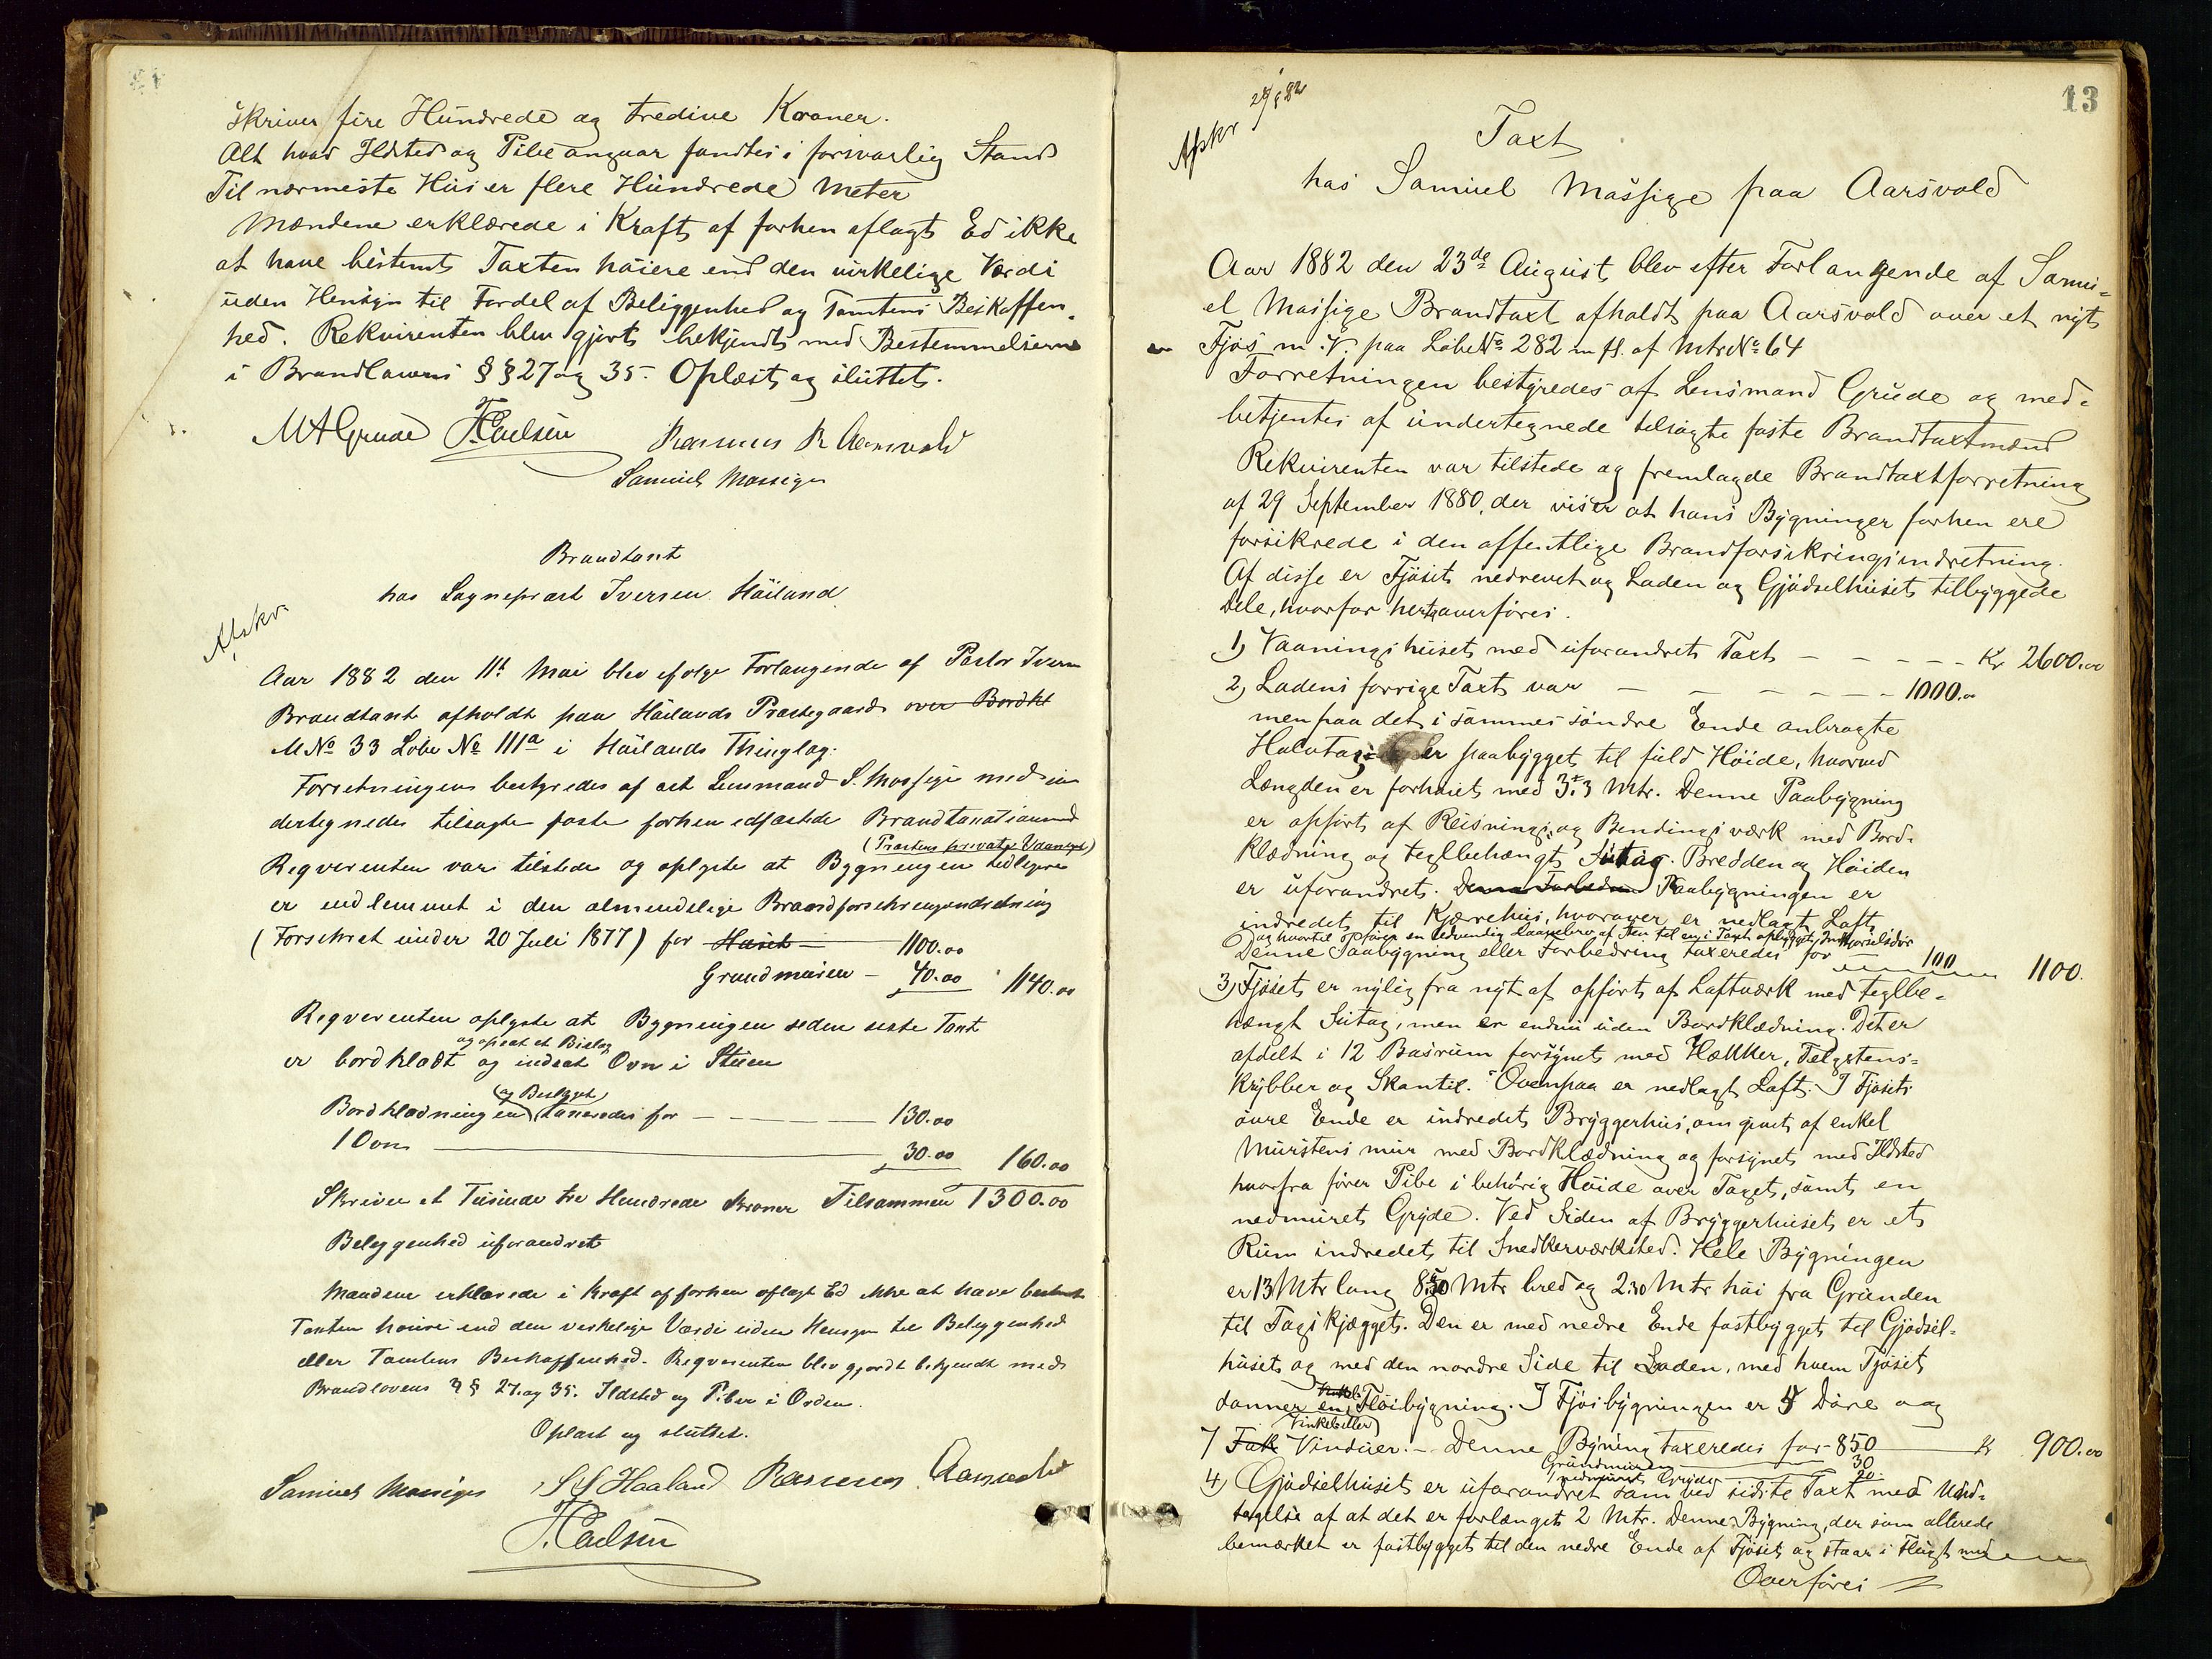 skriver fire Hundrede og tredive Kroner.
Alt hvad Ildsted og Pibe angaar fandtes i forsvarlig Stand
Til nærmeste Hus er flere Hundrede Meter
Mændene erklærede i Kraft af forhen aflagt Ed ikke
at have bestemt Taxten høiere end den virkelige Værdi
uden Hensyn til Fordel af Beliggenhed og Tomtens Beskaffen-
hed. Rekvirenten blev gjort bekjendt med Bestemmelserne
i Brandlovens §§ 27 og 35. Oplæst og sluttet.
M A Grude T. Paulsen Rasmus R Aarsvold
Samuel Massige
Brandtaxt
hos Sogneprest Iversen Høiland
Afskr.
Aar 1882 den 11te Mai blev ifølge Forlangende af Pastor Iversen
Brandtaxt afholdt paa Høilands Prestegaard over Bordkl
M No 33 Løbe No 111a i Høilands Thinglag.
Forretningen bestyredes af cst Lensmand S. Massige med un
dertegnede tilsagte faste forhen edfæstede Brandtaxationsmænd
(Prestens private Vaaningshus)
Reqverenten var tilstede og oplyste at Bygningen tidligere
er indlemmet i den almindelige Brandforsikringsindretning
(Forsikret under 20 Juli 1877) for Huset — 1100.00
Grundmuren — 40.00 1140.00
Reqverenten oplyste at Bygningen siden siste Taxt
og opsat et Bislag
er bordklædt og indsat Ovn i Stuen
(og Bislaget)
Bordklædningen taxeredes for — 130.00
1 Ovn — 30.00 160.00
Skriver et Tusinde tre Hundrede Kroner Tilsammen 1300.00
Beliggenhed uforandret
Mændene erklærede i Kraft af forhen aflagt Ed ikke at have bestemt
Taxten høiere end den verkelige Værdi uden Hensyn til Beliggenhed
eller Tomtens Beskaffenhed. Reqverenten blev gjordt bekjendt med
Brandlovens §§ 27 og 35. Ildsted og Piber i Orden.
Oplæst og sluttet.
Samuel Massige S S Haaland Rasmus Aarsvold
T. Paulsen
13
Afskr 28/8 82
Taxt
hos Samuel Massige paa Aarsvold
Aar 1882 den 23de August blev efter Forlangende af Samu-
el Massige Brandtaxt afholdt paa Aarsvold over et nyt
Fjøs m. V. paa Løbe No 282 m fl. af Mtr No 64
Forretningen bestyredes af Lensmand Grude og med-
betjentes af undertegnede tilsagte faste Brandtaxtmænd
Rekvirenten var tilstede og fremlagde Brandtaxtforretning
af 29 September 1880, der viser at hans Bygninger forhen ere
forsikrede i den offentlige Brandforsikringsindretning.
Af disse er Fjøset nedrevet og Laden og Gjødselhuset tilbyggede
Dele, hvorfor hertil overføres.
1) Vaaningshuset med uforandret Taxt — Kr 2600.00
2) Ladens forrige Taxt var — 1000.00
men paa det i sammes søndre Ende anbragte
Halvtag er paabygget til fuld Høide, hvorved
Længden er forhøiet med 3.3 Mtr. Denne Paabygning
er opført af Reisnings og Bendingsværk med Bord-
klædning og teglbehængt Sutag. Bredden og Høiden
er uforandret. Denne Forbedrin Paabygningen er
indredet til Kjørrehus, hvorover er nedlagt Loft,
og hvortil opføier en udvendig Laavebro af Sten til en i Taxt opbygget Indkjørselsdør
Denne Paabygning eller Forbedring taxeredes for 100 1100.
3) Fjøset er nylig fra nyt af opført af Laftværk med teglbe-
hængt Sutag, men er endnu uden Bordklædning. Det er
afdelt i 12 Baasrum forsynet med Hækker, Telgstens-
krybber og Skantil. Ovenpaa er nedlagt Loft. I Fjøsets
øvre Ende er indredet Bryggerhus, omgivet af enkel
Murstensmur med Bordklædning og forsynet med Ildsted
hvorfra fører Pibe i behørig Høide over Taget, samt en
nedmuret Gryde. Ved Siden af Bryggerhuset er et
Rum indredet til Snedkerværksted. Hele Bygningen
er 13 Mtr lang 8.30 Mtr bred og 2.30 Mtr høi fra Grunden
til Tagskjægget. Den er med nedre Ende fastbygget til Gjødsel-
huset og med den nordre Side til Laden, med hvem Fjøset
danner en Fløibygning. I Fjøsbygningen er 4 Døre og
Vinkel eller)
7 Fak Vinduer. — Denne Bygning taxeredes for 850 — Kr 900.00
Grundmuren — 30
1 nedmuret Gryde — 20
4) Gjødselhuset er uforandret som ved sidste Taxt med Und-
tagelse af at det er forlænget 2 Mtr. Denne Bygning, der som allerede
bemærket er fastbygget til den nedre Ende af Fjøset og staar i Flugt med
Overføres